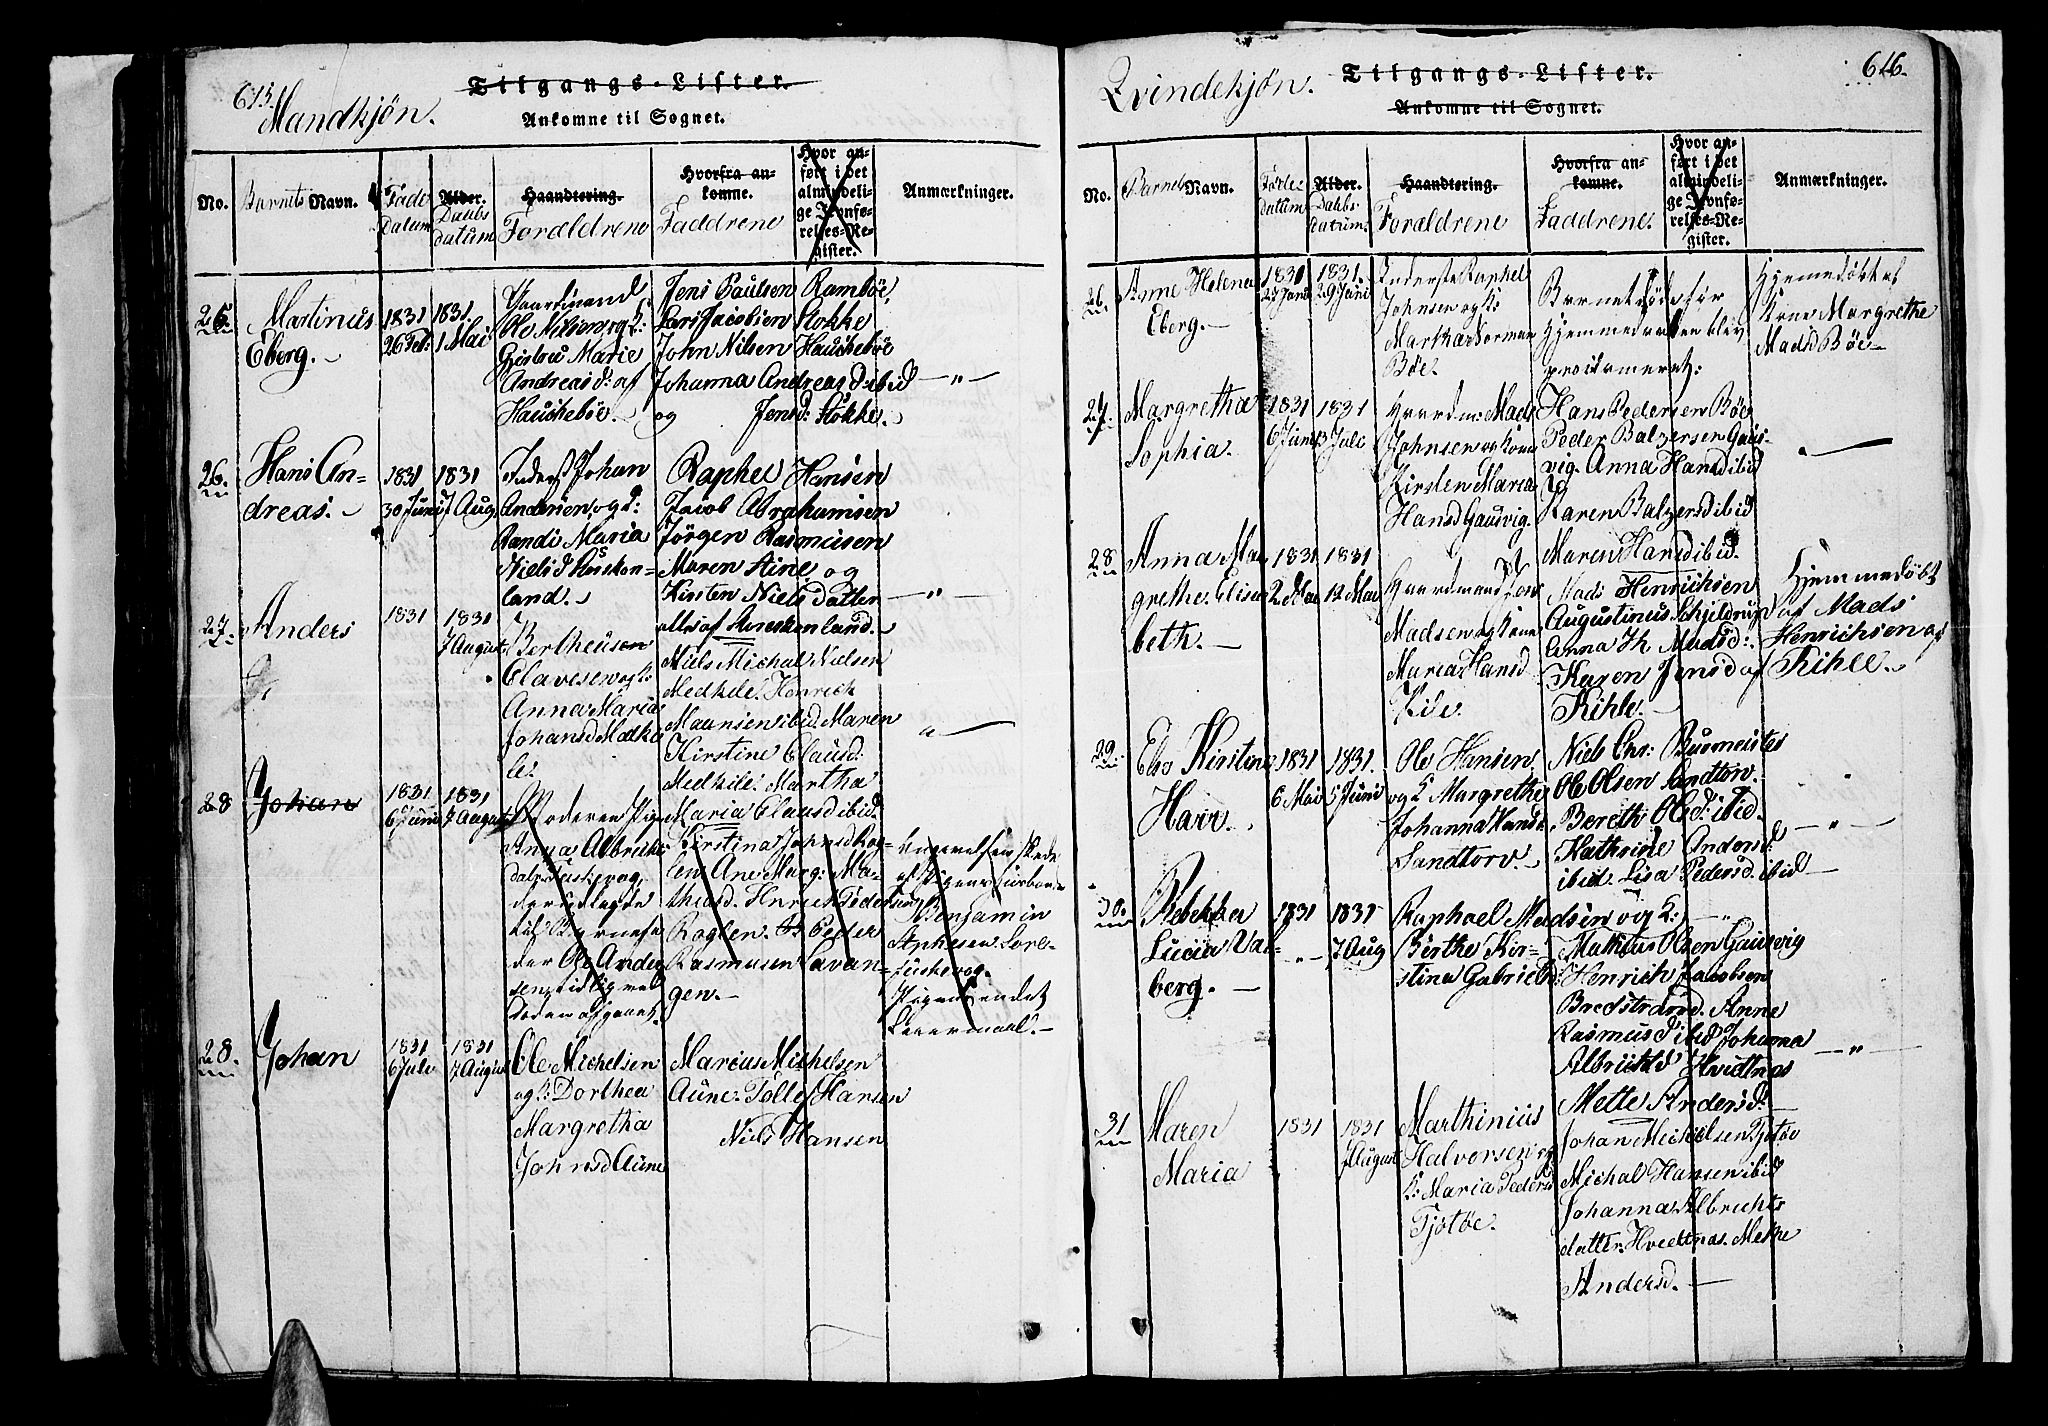 615.
Mandkjön.
Tilgangs-Lister.
Ankomne til Sognet.
No.
Barnets Navn.
Føde Datum
Alder.
Daabs datum
Haandtering.
Forældrene
Hvorfra ankomne.
Faddrene
Hvor anført i det almindelige Jevnførelses-Register.
Anmærkninger.
25
Martinius
Eberg. -
1831
26 Feb:
1831.
1 Mai
Ole Nilsen, og K:
Marie
Andreasd: af
Hauskebøe. -
Jens Paulsen Rambøe,
Lars Jacobsen Stokke
John Nilsen Hauskebøe
Johanna Andreasd: ibid
og Jensd: Stokke. -
-"-
26.
Hans An=
dreas. -
1831
30 Juni
1831
7 Aug.
Inderst Johan
Andersen, og K:
Randi Maria
Nielsd
land. -
Raphel Hansen
Jacob Abrahamsen
Jörgen Rasmusen
Maren Stine og
Kirsten Niels datter
alle af
-"-
27.
Anders
1831
1831
7 August
Bertheusen
Anna Maria
Johansd
Niels Michal Nielsen
Medkile. Henrich
Maansen ibid. Maren
Kirstine Clausd:
Medkile. Martha
Maria Clausd ibid.
"-
28
Johan
1831
6 Juni
1831
7 August
Moderen Pig
Anna Albrichts
der Ole Ander
sen
Døden afgaaet.
Kirstina Johnsd Rog=
len Ane Marg: Ma=
thiasd. Henrich Peder
Roglen. Peder
Rasmusen Lavan=
gen. -
Benjamin
Pigens endet
Leiermaal. -
28.
Johan
1831
6 Juli
1831
7 August
Ole Michelsen
og K: Dorthea
Margretha
Johnsd Aune
Marcus Michelsen
Aune. Tolle Hansen
Niels Hansen
Qvindekjøn.
Tilgangs-Lister.
Ankomne til Sognet.
616.
No.
Barnets Navn.
Födes datum
Alder.
Daabs datum.
Haandtering.
Forældrene
Hvorfra ankomne.
Faddrene.
Hvor anført i det almindelige Jevnførelses-Register.
Anmærkninger.
26.
Anne Helena
Eberg. -
1831
27 Juni
1831.
29 Juni
Inderste Raphel
Johnsen og K:
Martha
Böe.
Barnet døde før
Hjemmedaaben blev
Hjemmedøbt af
Kone Margrethe
Madsd Böe -
27.
Margretha
Sophia.
1831
6 Juni
1831
3 Juli
Gaardm: Mads
Johnsen og Kone
Kirsten Maria
Hansd Gausvig.
Hans Pedersen Böe
Peder Balzersen Gaus-
vig. Anna Hansd ibid
Karen Balzersd ibid
Maren Hansd ibid.
28
Anna Mar
grethe Elisa
beth. -
1831
2 Mai
1831
12 Mai
Gaardmand
Madsen og Kone
Maria Hansd
Kile.
Mads Henrichsen
Augustinus Schjeldrup
Anna K. Madsd:
Karen Jensd af
Kihle. -
Hjemmedöbt
af Mads
Henrichsen af
Kihle. -
29.
Else Kirstine
Harr.
1831
6 Mai
1831.
5 Juni
Ole Hansen
og K Margrethe
Johanna
Sandtorv -
Niels Chr: Busmeister
Ole Olsen Sandtorv.
Bereth Olsd: ibid.
Kathrine Andersd:
ibid. Lisa Pedersd. ibid
-"-
30.
Rebekka
Lucia Val=
berg. -
1831
-"-
1831
7 Aug
Raphael Madsen og K:
Birthe Kir=
stina Gabrielsd:
Mathias Olsen Gausvig
Henrich Jacobsen
Bredstrand. Anne
Rasmusd ibid Johanna
Albrichtsd Hvidtnæs
Mette Andersd:
-"-
31
Maren
Maria
1831
1831
7 August
Marthinius
Halvorsen og
K: Maria Peders
Tjötöe.
Johan Michelsen Tjötöe
Michal Hansen ibid
Johanna Albrichts
datter. Hvedtnæs. Mette
Andersd. -